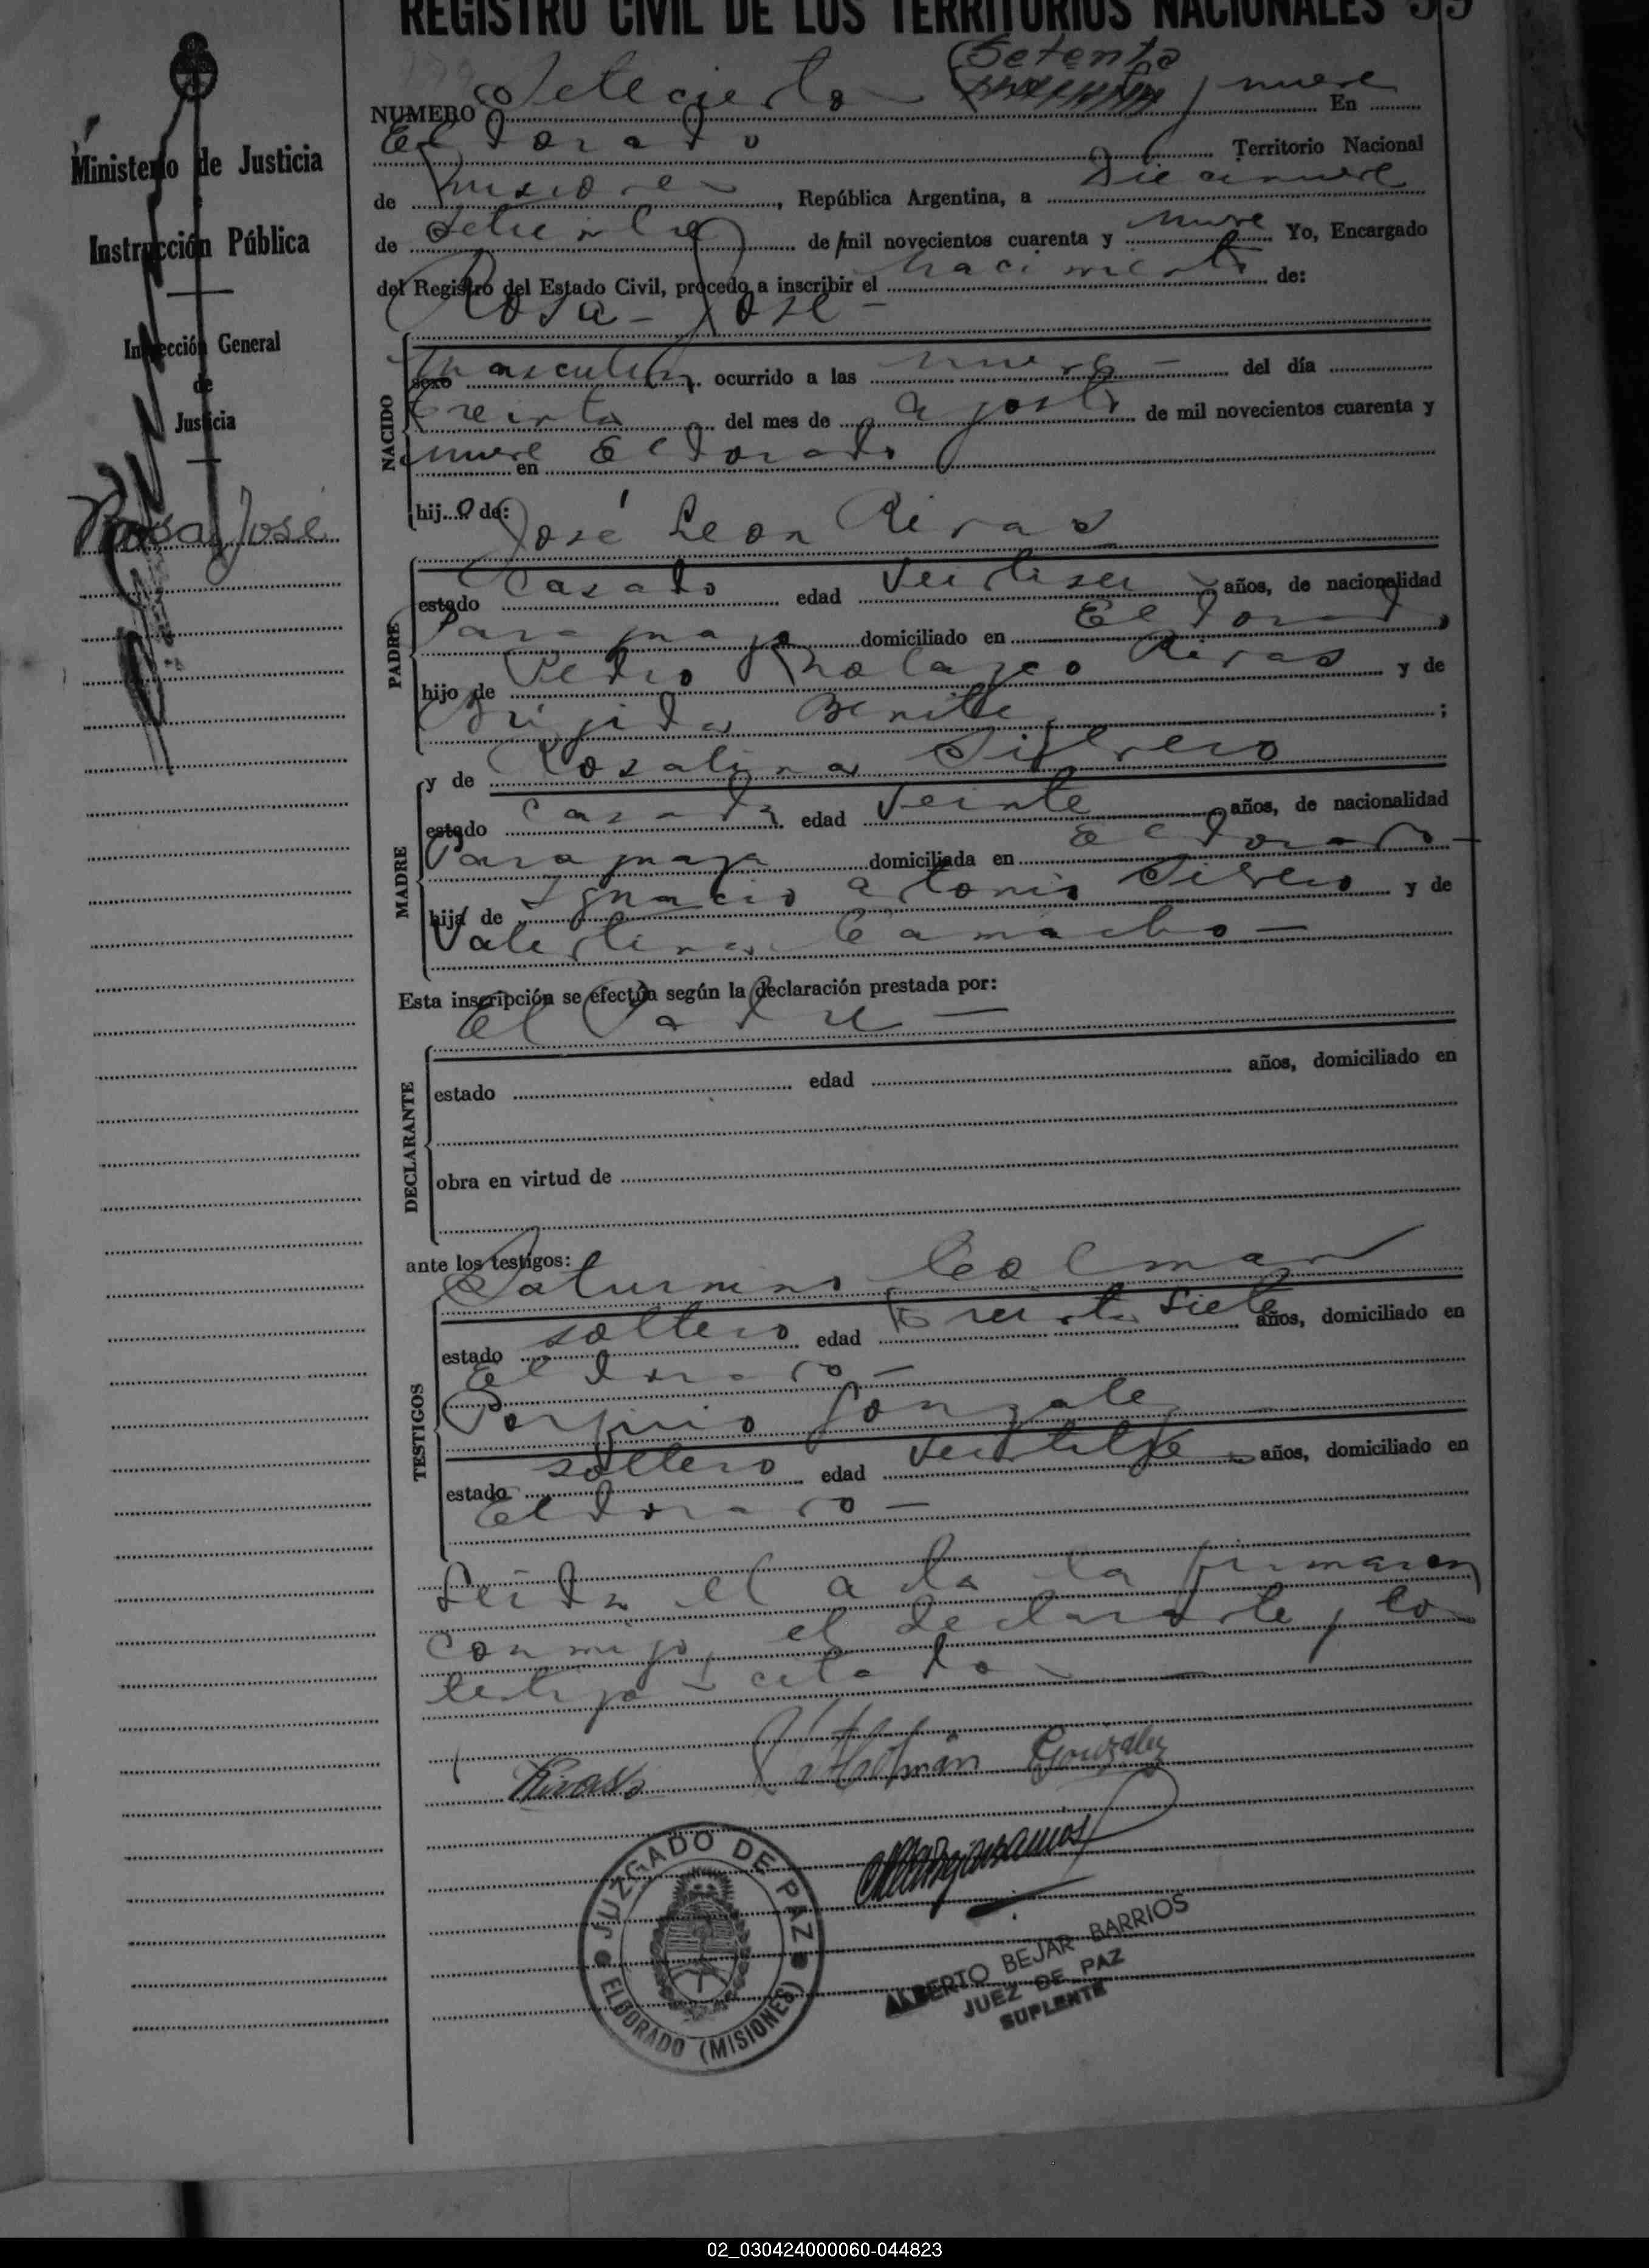 REGISTRO CIVIL DE LOS TERRITORIOS NACIONALES
Setenta
NUMERO Setecientos y nueve En
Eldorado Territorio Nacional
de Misiones, República Argentina, a Diecinueve
de Setiembre de mil novecientos cuarenta y nueve Yo, Encargado
del Registro del Estado Civil, procedo a inscribir el nacimiento de:
Rosa - José -
Ministerio de Justicia
Instrucción Pública
Inspección General
de
Justicia
Rosa José
NACIDO
sexo masculino ocurrido a las nueve - del día
treinta del mes de agosto de mil novecientos cuarenta y
nueve en Eldorado
hij o de:
José León Rivas
PADRE
estado casado edad veintiseis años, de nacionalidad
Paraguayo domiciliado en Eldorado
hijo de Pedro Nolazco Rivas y de
Brigida Benitez ;
y de Rosalina Silvero
MADRE
estado casada edad Veinte años, de nacionalidad
Paraguaya domiciliada en Eldorado -
hija de Ignacio Antonio Silvero y de
Valentina Camacho -
Esta inscripción se efectúa según la declaración prestada por:
El Padre -
DECLARANTE
estado edad años, domiciliado en
obra en virtud de
ante los testigos:
Saturnino Colman
TESTIGOS
estado soltero edad treinta siete años, domiciliado en
Eldorado -
Porfirio Gonzalez
estado soltero edad años, domiciliado en
Eldorado -
Leida el acta la firmaron
conmigo, el declarante y los
testigos citados -
Rivas Colmán González
JUZGADO DE PAZ
ELDORADO (MISIONES)
ALBERTO BEJAR BARRIOS
JUEZ DE PAZ
SUPLENTE
02_030424000060-044823